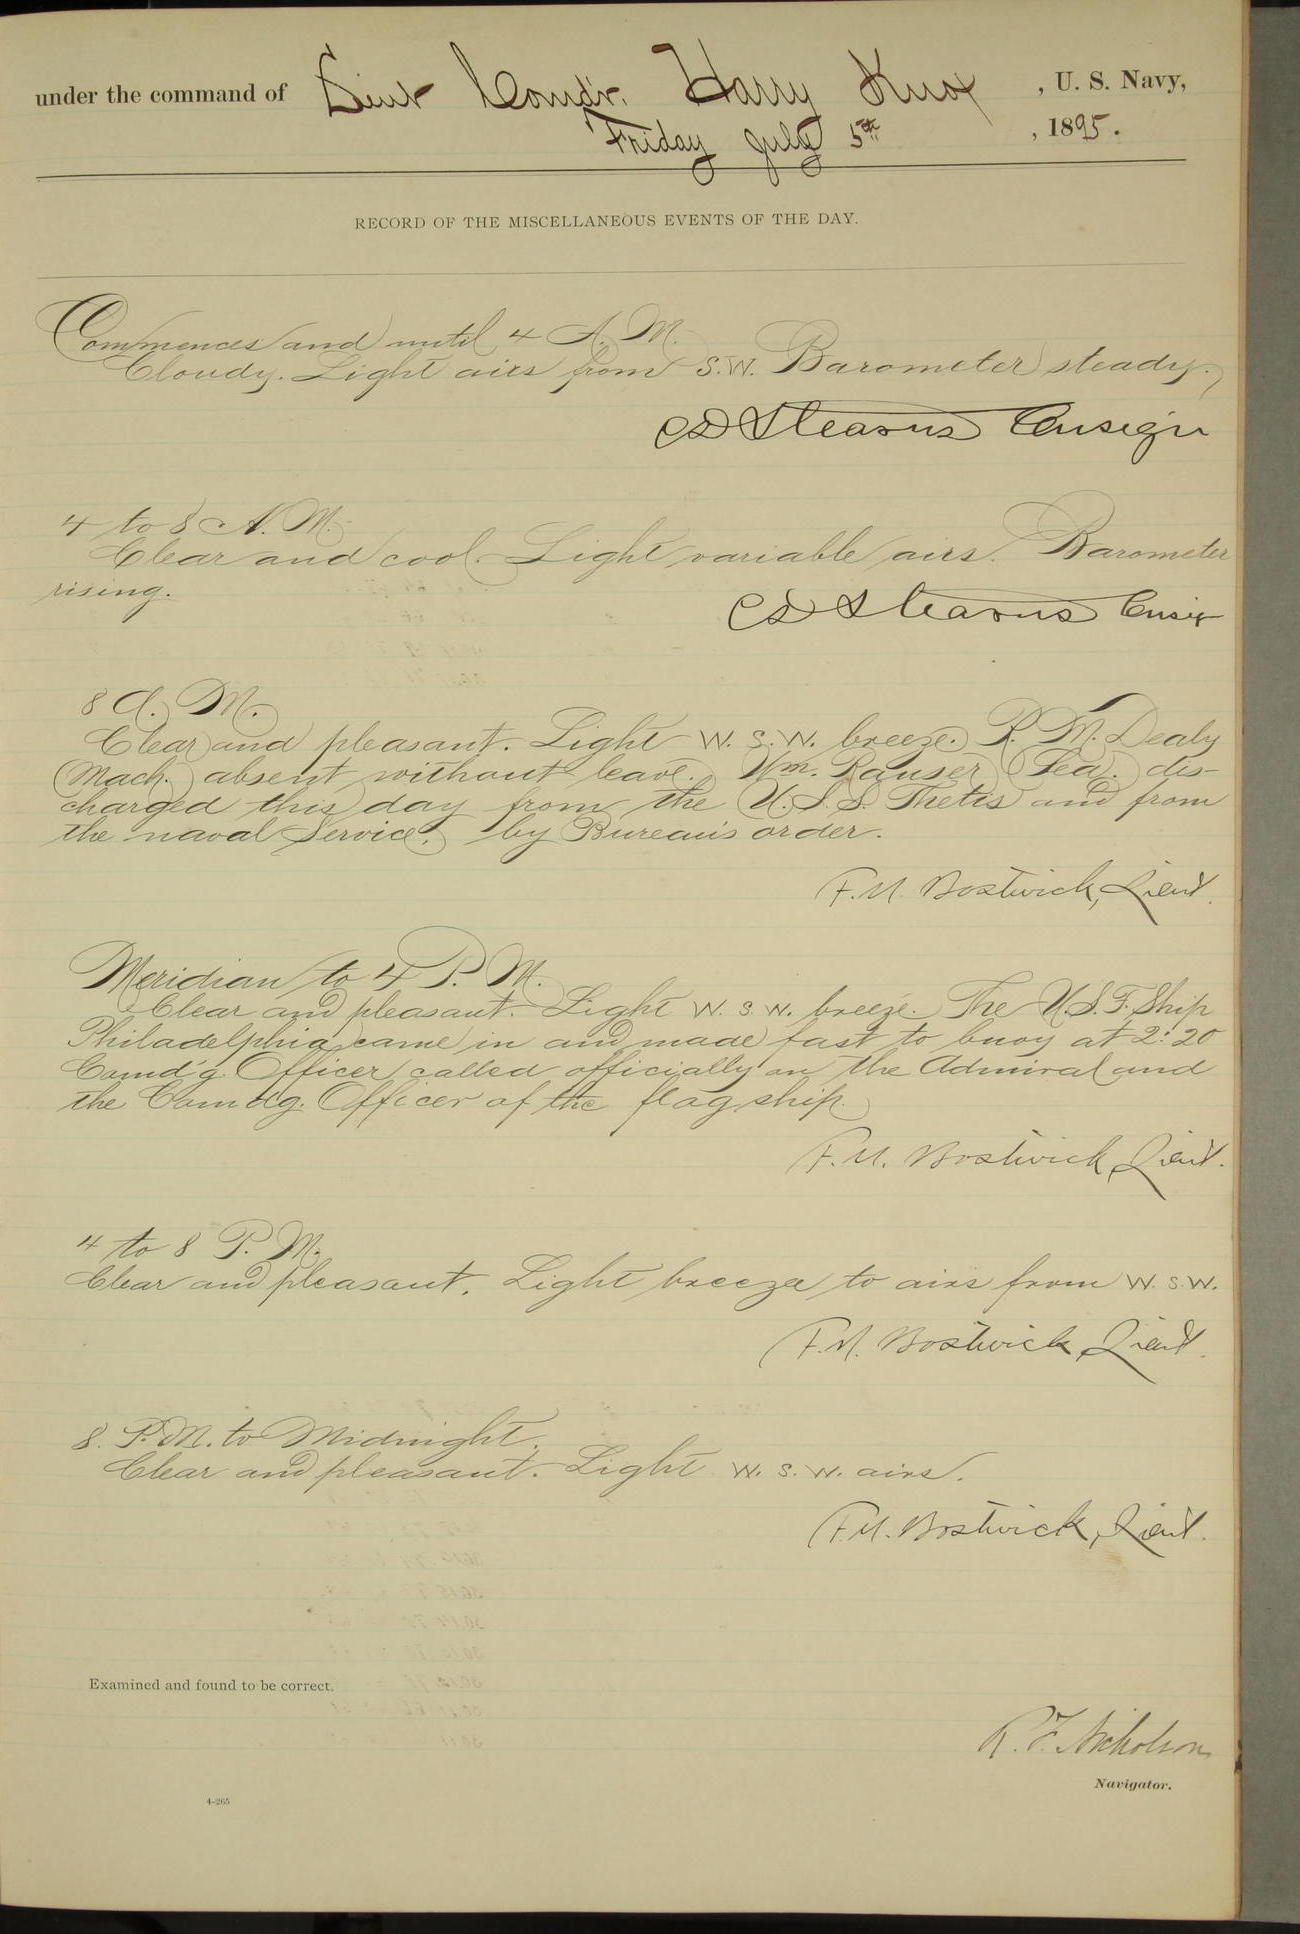 under the command of Lieut Comd'r. Harry Knox , U. S. Navy,
Friday July 5th , 1895.
RECORD OF THE MISCELLANEOUS EVENTS OF THE DAY.
Commences and until 4 A. M.
Cloudy. Light airs from S.W. Barometer steady.
CD Stearns Ensign
4 to 8 A. M.
Clear and cool. Light variable airs. Barometer
rising.
CD Stearns Ensign
8 A. M.
Clear and pleasant. Light W. S. W. breeze. R. M. Dealy
(Mach.) absent without leave. Wm. Rauser (Sea.) dis-
charged this day from the U.S.S. Thetis and from
the naval Service, by Bureau's order.
F. M. Bostwick, Lieut.
Meridian to 4 P. M.
Clear and pleasant. Light W. S. W. breeze. The U.S.F. Ship
Philadelphia came in and made fast to buoy at 2:20
Comd'g Officer called officially on the Admiral and
the Comdg. Officer of the flag ship.
F. M. Bostwick, Lieut.
4 to 8 P. M.
Clear and pleasant. Light breeze to airs from W. S. W.
F. M. Bostwick, Lieut.
8. P. M. to Midnight.
Clear and pleasant. Light W. S. W. airs.
F. M. Bostwick, Lieut.
Examined and found to be correct.
R. F. Nicholson
Navigator.
4-265